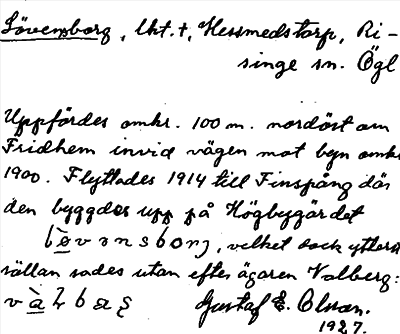 Lövensborg, lht. †, Hessmedstorp, Ri-
singe sn. Ögl
Uppfördes omkr. 100 m. nordöst om
Fridhem invid vägen mot byn omkr
1900. Flyttades 1914 till Finspång där
den byggdes upp på Högbygärdet
, vilket dock ytterst
sällan sades utan efter ägaren Valberg:
Gustaf E. Olsson.
1927.